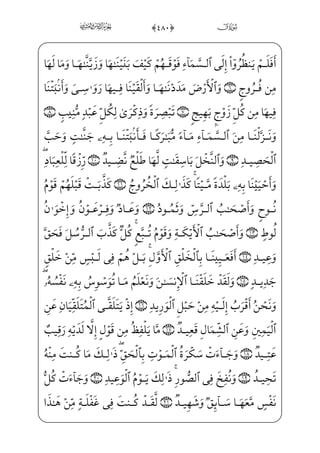 سورة ق ﴿٤٨٠﴾ الجزء السادس والعشرون
أَفَلَمۡ يَنظُرُوٓاْ إِلَى ٱلسَّمَآءِ فَوۡقَهُمۡ كَيۡفَ بَنَيۡنَٰهَا وَزَيَّنَّٰهَا وَمَا لَهَا
مِن فُرُوجٖ ۝٦ وَٱلۡأَرۡضَ مَدَدۡنَٰهَا وَأَلۡقَيۡنَا فِيهَا رَوَٰسِيَ وَأَنۢبَتۡنَا
فِيهَا مِن كُلِّ زَوۡجِۭ بَهِيجٖ ۝٧ تَبۡصِرَةٗ وَذِكۡرَىٰ لِكُلِّ عَبۡدٖ مُّنِيبٖ ۝٨
وَنَزَّلۡنَا مِنَ ٱلسَّمَآءِ مَآءٗ مُّبَٰرَكٗا فَأَنۢبَتۡنَا بِهِۦ جَنَّٰتٖ وَحَبَّ
ٱلۡحَصِيدِ ۝٩ وَٱلنَّخۡلَ بَاسِقَٰتٖ لَّهَا طَلۡعٞ نَّضِيدٞ ۝١٠ رِّزۡقٗا لِّلۡعِبَادِۖ
وَأَحۡيَيۡنَا بِهِۦ بَلۡدَةٗ مَّيۡتٗاۚ كَذَٰلِكَ ٱلۡخُرُوجُ ۝١١ كَذَّبَتۡ قَبۡلَهُمۡ قَوۡمُ
نُوحٖ وَأَصۡحَٰبُ ٱلرَّسِّ وَثَمُودُ ۝١٢ وَعَادٞ وَفِرۡعَوۡنُ وَإِخۡوَٰنُ
لُوطٖ ۝١٣ وَأَصۡحَٰبُ ٱلۡأَيۡكَةِ وَقَوۡمُ تُبَّعٖۚ كُلّٞ كَذَّبَ ٱلرُّسُلَ فَحَقَّ
وَعِيدِ ۝١٤ أَفَعَيِينَا بِٱلۡخَلۡقِ ٱلۡأَوَّلِۚ بَلۡ هُمۡ فِي لَبۡسٖ مِّنۡ خَلۡقٖ
جَدِيدٖ ۝١٥ وَلَقَدۡ خَلَقۡنَا ٱلۡإِنسَٰنَ وَنَعۡلَمُ مَا تُوَسۡوِسُ بِهِۦ نَفۡسُهُۥۖ
وَنَحۡنُ أَقۡرَبُ إِلَيۡهِ مِنۡ حَبۡلِ ٱلۡوَرِيدِ ۝١٦ إِذۡ يَتَلَقَّى ٱلۡمُتَلَقِّيَانِ عَنِ
ٱلۡيَمِينِ وَعَنِ ٱلشِّمَالِ قَعِيدٞ ۝١٧ مَّا يَلۡفِظُ مِن قَوۡلٍ إِلَّا لَدَيۡهِ رَقِيبٌ
عَتِيدٞ ۝١٨ وَجَآءَتۡ سَكۡرَةُ ٱلۡمَوۡتِ بِٱلۡحَقِّۖ ذَٰلِكَ مَا كُنتَ مِنۡهُ
تَحِيدُ ۝١٩ وَنُفِخَ فِي ٱلصُّورِۚ ذَٰلِكَ يَوۡمُ ٱلۡوَعِيدِ ۝٢٠ وَجَآءَتۡ كُلُّ
نَفۡسٖ مَّعَهَا سَآئِقٞ وَشَهِيدٞ ۝٢١ لَّقَدۡ كُنتَ فِي غَفۡلَةٖ مِّنۡ هَٰذَا